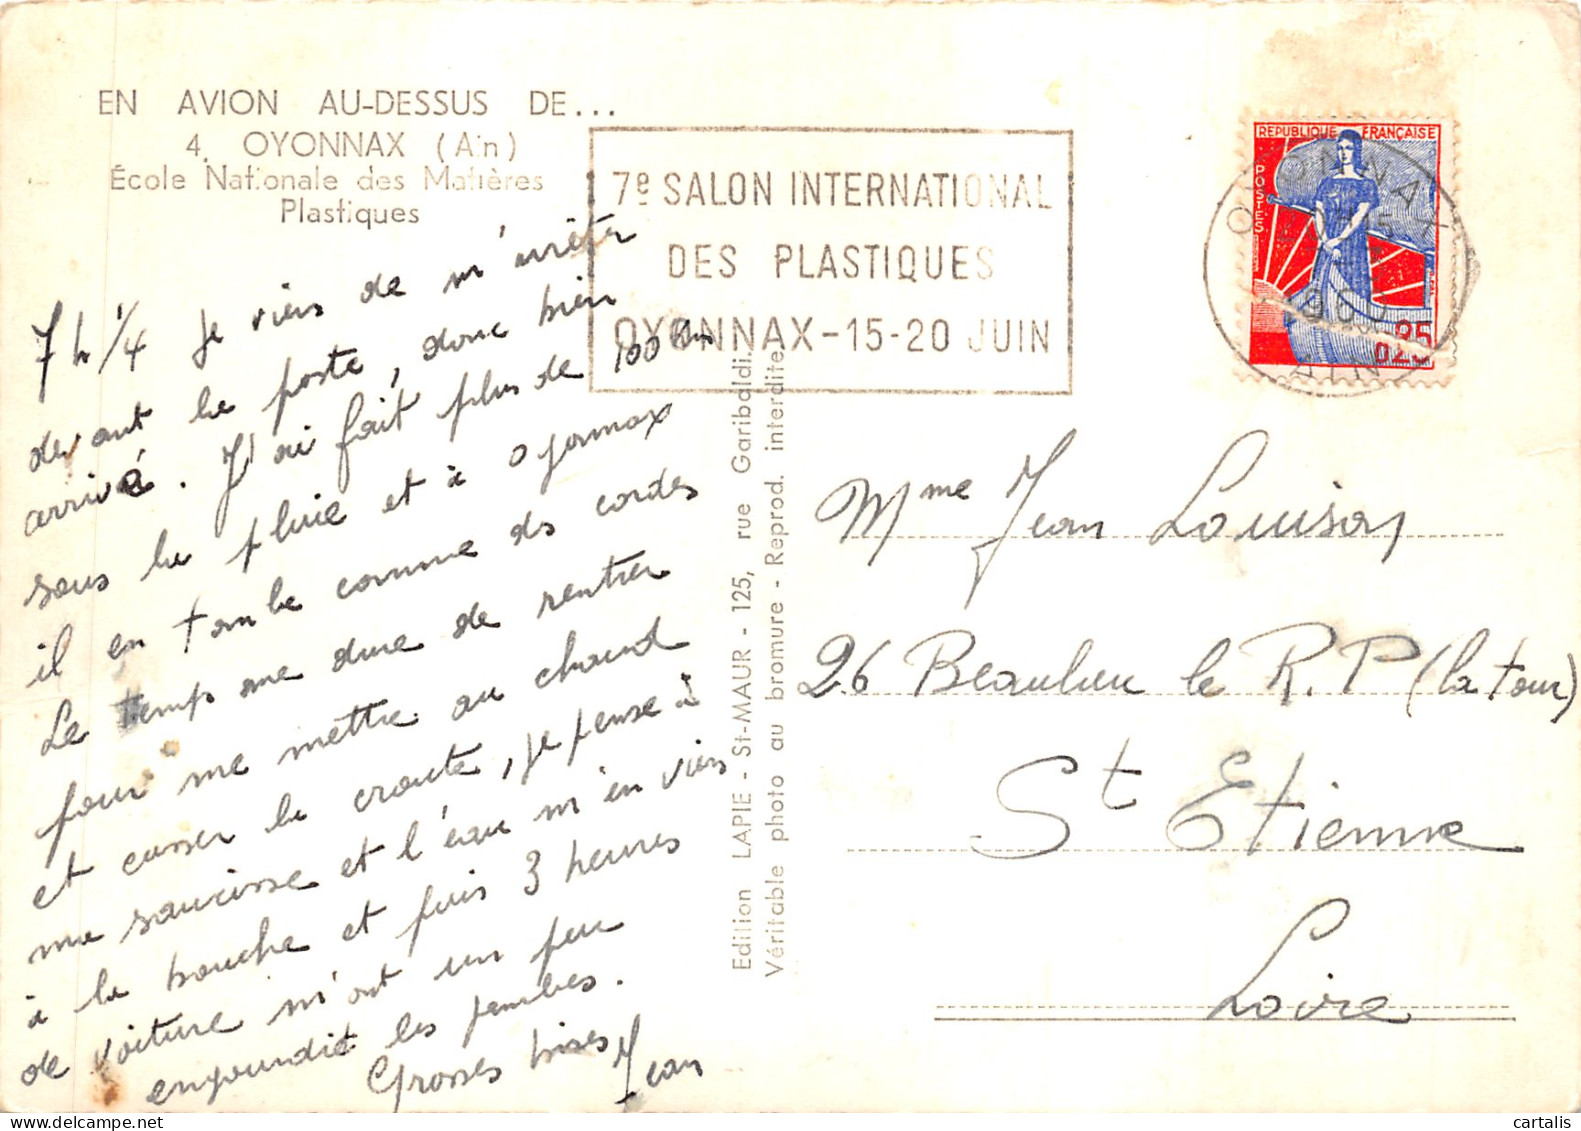 EN AVION AU-DESSUS DE...
4. OYONNAX (Ain)
École Nationale des Matières
Plastiques
7e SALON INTERNATIONAL
DES PLASTIQUES
OYONNAX-15-20 JUIN
REPUBLIQUE FRANÇAISE
POSTES
0,25
OYONNAX
1960
AIN
7h 1/4 Je viens de m'arrêter
devant la poste, donc bien
arrivé. J'ai fait plus de 100 km
sous la pluie et à Oyonnax
il en tombe comme des cordes
Le temps me dure de rentrer
pour me mettre au chaud
et casser la croute, je pense à
ma saucisse et l'eau m'en vien
à la bouche et puis 3 heures
de voiture m'ont un peu
engourdit les jambes.
Grosses bises
Jean
Edition LAPIE - St-MAUR - 125, rue Garibaldi.
Véritable photo au bromure - Reprod. interdite
Mme Jean Louison
26 Beaulieu le R.P (la tour)
St Etienne
Loire
cartalis